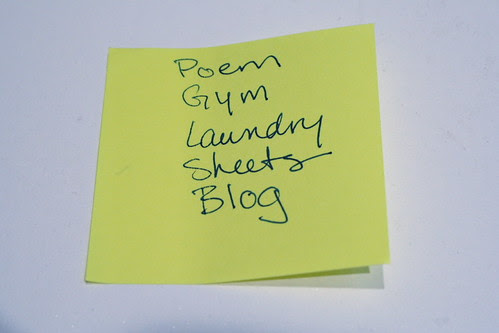 Poem
Gym
Laundry
Sheets
Blog